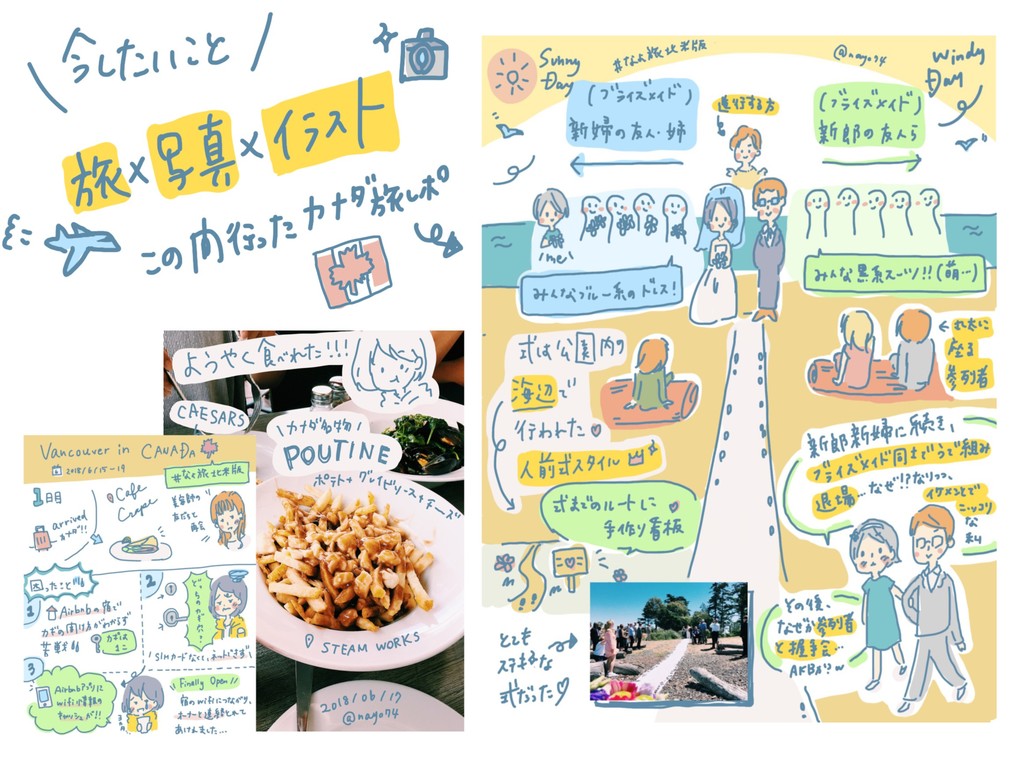 今したいこと
旅×写真×イラスト
この間行ったカナダ旅レポ
ようやく食べれた!!!
CAESARS
カナダ名物
POUTINE
ポテト+グレイビソース+チーズ
STEAM WORKS
2018/06/17
@nayo74
Vancouver in CANADA
2018/6/15-19
#なよ旅北米版
1日目
Cafe
Crepe
arrived
困ったこと
1
Airbnbの宿で
カギの開け方がわからず
苦戦
カギは
ここ
2
どっちのカギだ!
SIMカードなくて、ネットできず
3
Airbnbアプリに
wifi情報の
キャッシュが!!
Finally Open
宿のwifiにつながり、
オーナーと連絡とれて
あけれました…
Sunny
Day
#なよ旅北米版
@nayo74
Windy
Day
(ブライズメイド)
新婦の友人・姉
進行する方
(ブライズメイド)
新郎の友人ら
me
みんなブルー系のドレス!
みんな黒系スーツ!!(萌…)
式は公園内の
海辺で
行われた
人前式スタイル
丸太に
座る
参列者
式までのルートに
手作り看板
ここ
とても
ステキな
式だった
新郎新婦に続き、
ブライズメイド同士でうで組み
退場…なぜ!?なりつつ、
イケメンとで
ニッコリ
な私
その後、
なぜか参列者
と握手会…
AKBかいw